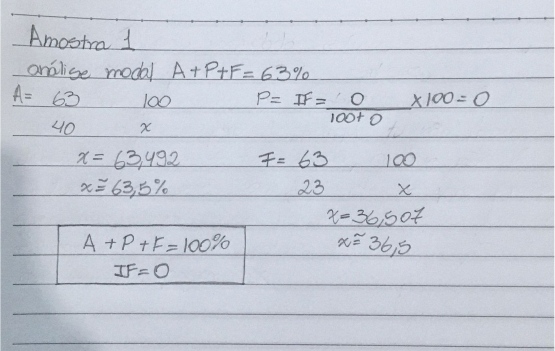 Amostra 1
análise modal A+P+F=63%
A= 63 100 P= IF= 0 x100=0
40 x 100+0
x= 63,492 F= 63 100
x≅63,5% 23 x
x=36,507
A+P+F=100% x≅36,5
IF=0